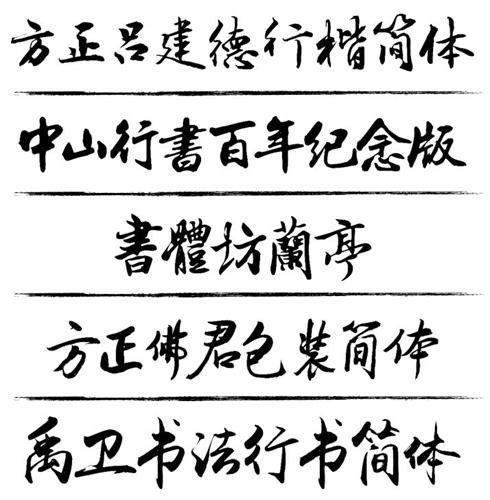 方正吕建德行楷简体
中山行書百年纪念版
書體坊蘭亭
方正佛君包装简体
禹卫书法行书简体